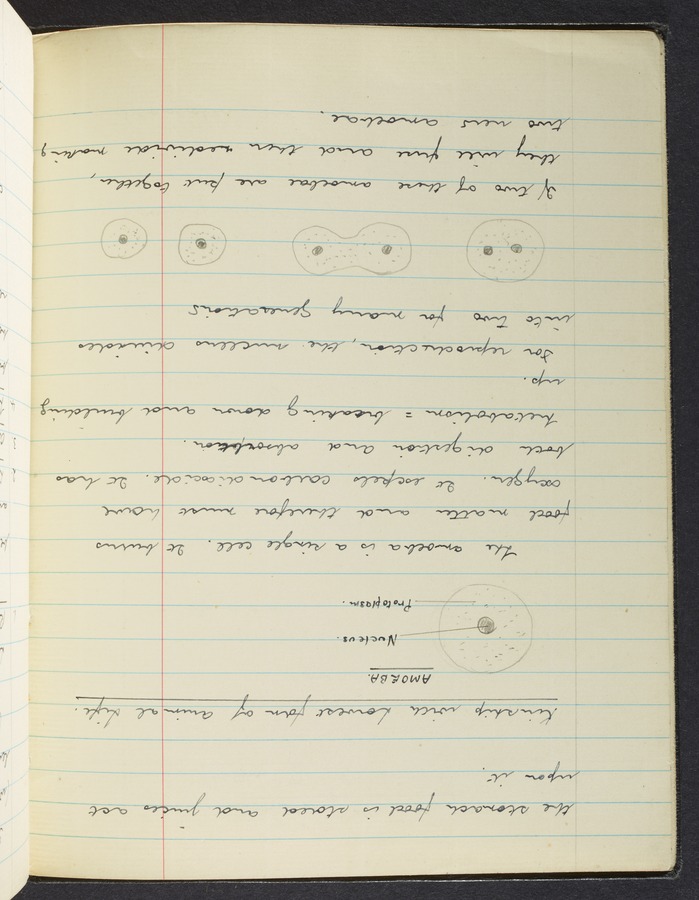 the stomach food is stored and juices act
upon it.
Kinship with Lowest form of animal Life.
AMOEBA.
Nucleus.
Protoplasm.
The amoeba is a single cell. It burns
food matter and therefore must have
oxygen. It expels carbon dioxide. It has
both digestion and absorbtion.
Metabolism = breaking down and building
up.
For reproduction, the nucleus divides
into two for many generations
If two of these amoebae are put together,
they will fuse and then redivide making
two new amoebae.